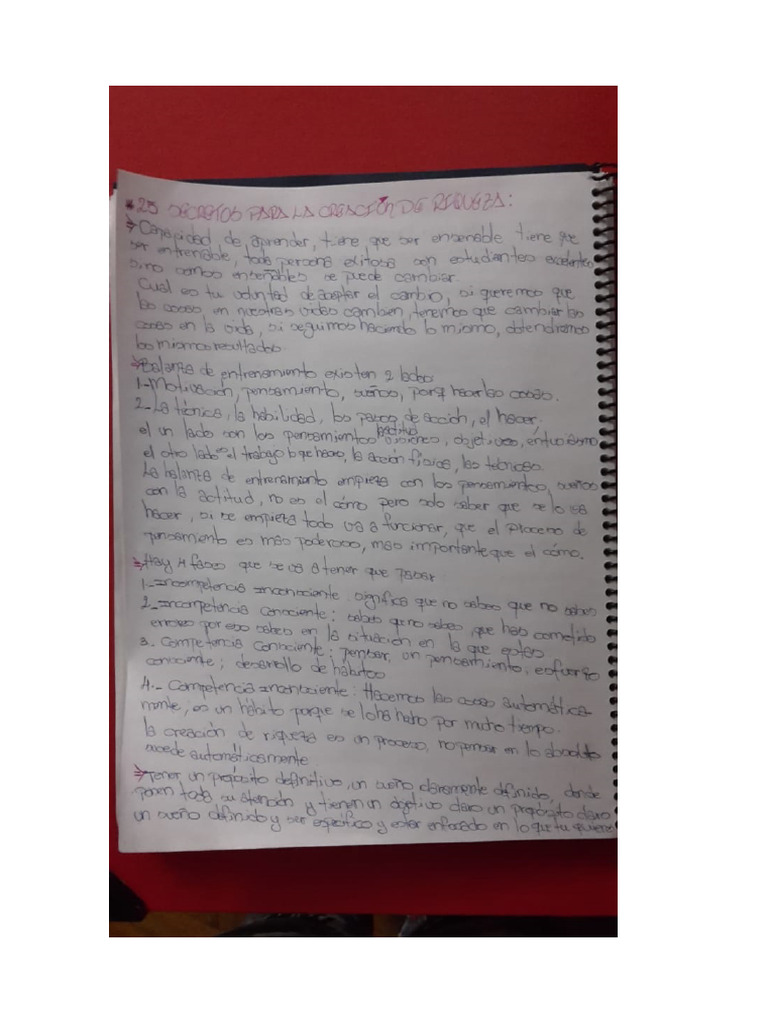 * 25 SECRETOS PARA LA CREACIÓN DE RIQUEZA:
Capacidad de aprender, tiene que ser enseñable tiene que
ser entrenable, toda persona exitosa son estudiantes excelentes
si no somos enseñables se puede cambiar.
Cual es tu voluntad de aceptar el cambio, si queremos que
las cosas, en nuestras vidas cambien, tenemos que cambiar las
cosas en la vida, si seguimos haciendo lo mismo, obtendremos
los mismos resultados.
Balanza de entrenamiento existen 2 lados
1.- Motivación, pensamiento, sueños, porq hacer las cosas.
2.- La técnica, la habilidad, los pasos de acción, el hacer.
el un lado son los pensamientos actitud visiones, objetivos, entusiasmo
el otro lado es el trabajo lo que hacen, la acción física, las técnicas.
La balanza de entrenamiento empieza con los pensamientos, sueños
con la actitud, no es el cómo pero solo saber que se lo va
hacer, si se empieza todo va a funcionar, que el Proceso de
pensamiento es mas poderoso, mas importante que el cómo.
Hay 4 fases que se va a tener que pasar
1.- Incompetencia inconsciente: significa que no sabes que no sabes
2.- Incompetencia consciente: sabes que no sabes, que has cometido
errores por eso sabes en la situación en la que estas
3.- Competencia consciente: pensar, un pensamiento, esfuerzo
consciente; desarrollo de hábitos
4.- Competencia inconsciente: Hacemos las cosas automática-
mente, es un hábito porque se lo ha hecho por mucho tiempo.
la creación de riqueza es un proceso, no pensar en lo absoluto
sucede automáticamente.
Tener un propósito definitivo, un sueño claramente definido, donde
ponen toda su atención y tienen un objetivo claro un propósito claro
un sueño definido y ser específico y estar enfocado en lo que tu quieres